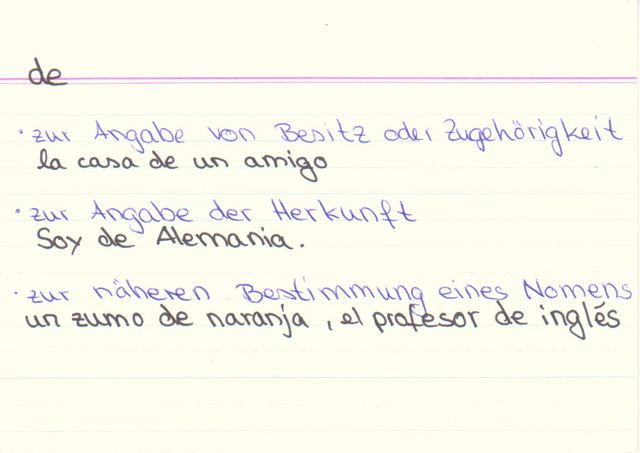 de
· zur Angabe von Besitz oder Zugehörigkeit
la casa de un amigo
· zur Angabe der Herkunft
Soy de Alemania.
· zur näheren Bestimmung eines Nomens
un zumo de naranja, el profesor de inglés